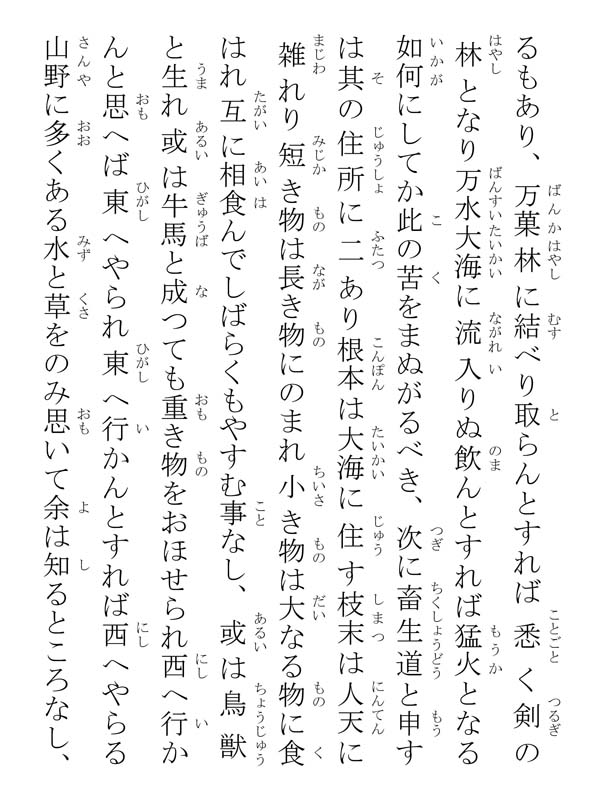 るもあり、万菓林に結べり取らんとすれば悉く剣の
林となり万水大海に流入りぬ飲んとすれば猛火となる
如何にしてか此の苦をまぬがるべき、次に畜生道と申す
は其の住所に二あり根本は大海に住す枝末は人天に
雑れり短き物は長き物にのまれ小き物は大なる物に食
はれ互に相食んでしばらくもやすむ事なし、或は鳥獣
と生れ或は牛馬と成つても重き物をおほせられ西へ行か
んと思へば東へやられ東へ行かんとすれば西へやらる
山野に多くある水と草をのみ思いて余は知るところなし、